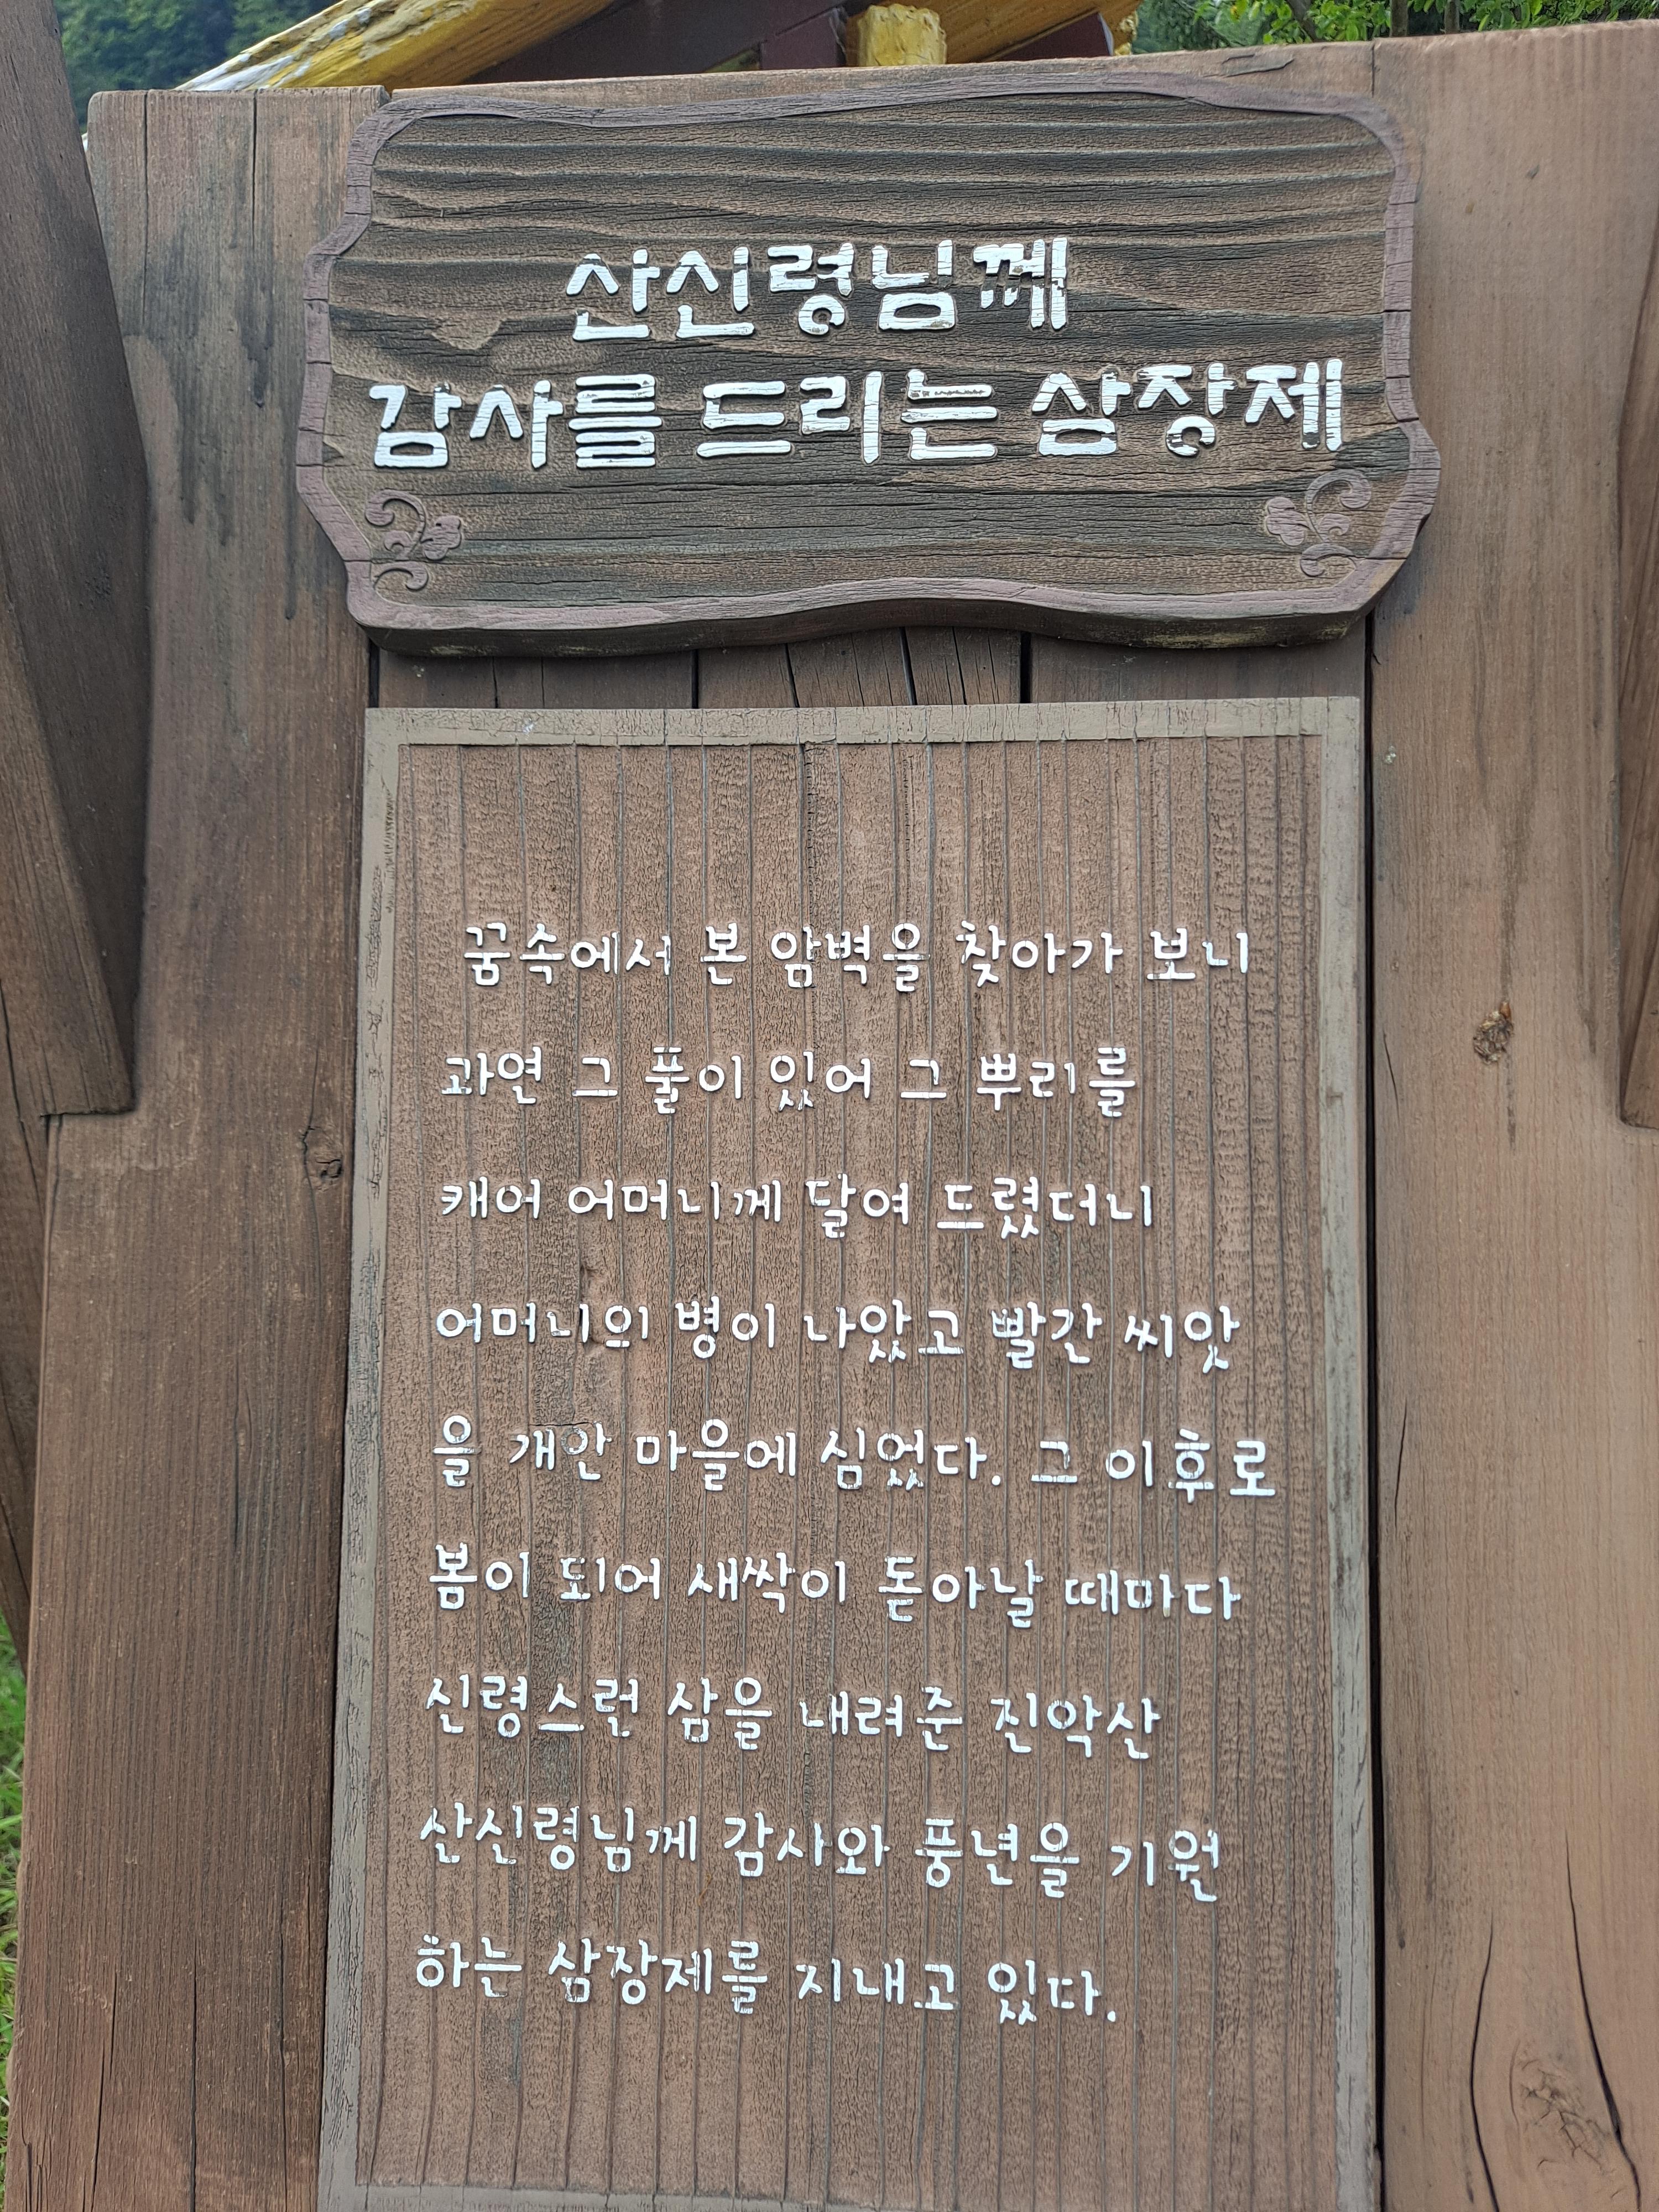 산신령님께
감사를 드리는 삼장제
꿈속에서 본 암벽을 찾아가 보니
과연 그 풀이 있어 그 뿌리를
캐어 어머니께 달여 드렸더니
어머니의 병이 나았고 빨간 씨앗
을 개안 마을에 심었다. 그 이후로
봄이 되어 새싹이 돋아날 때마다
신령스런 삼을 내려준 진악산
산신령님께 감사와 풍년을 기원
하는 삼장제를 지내고 있다.